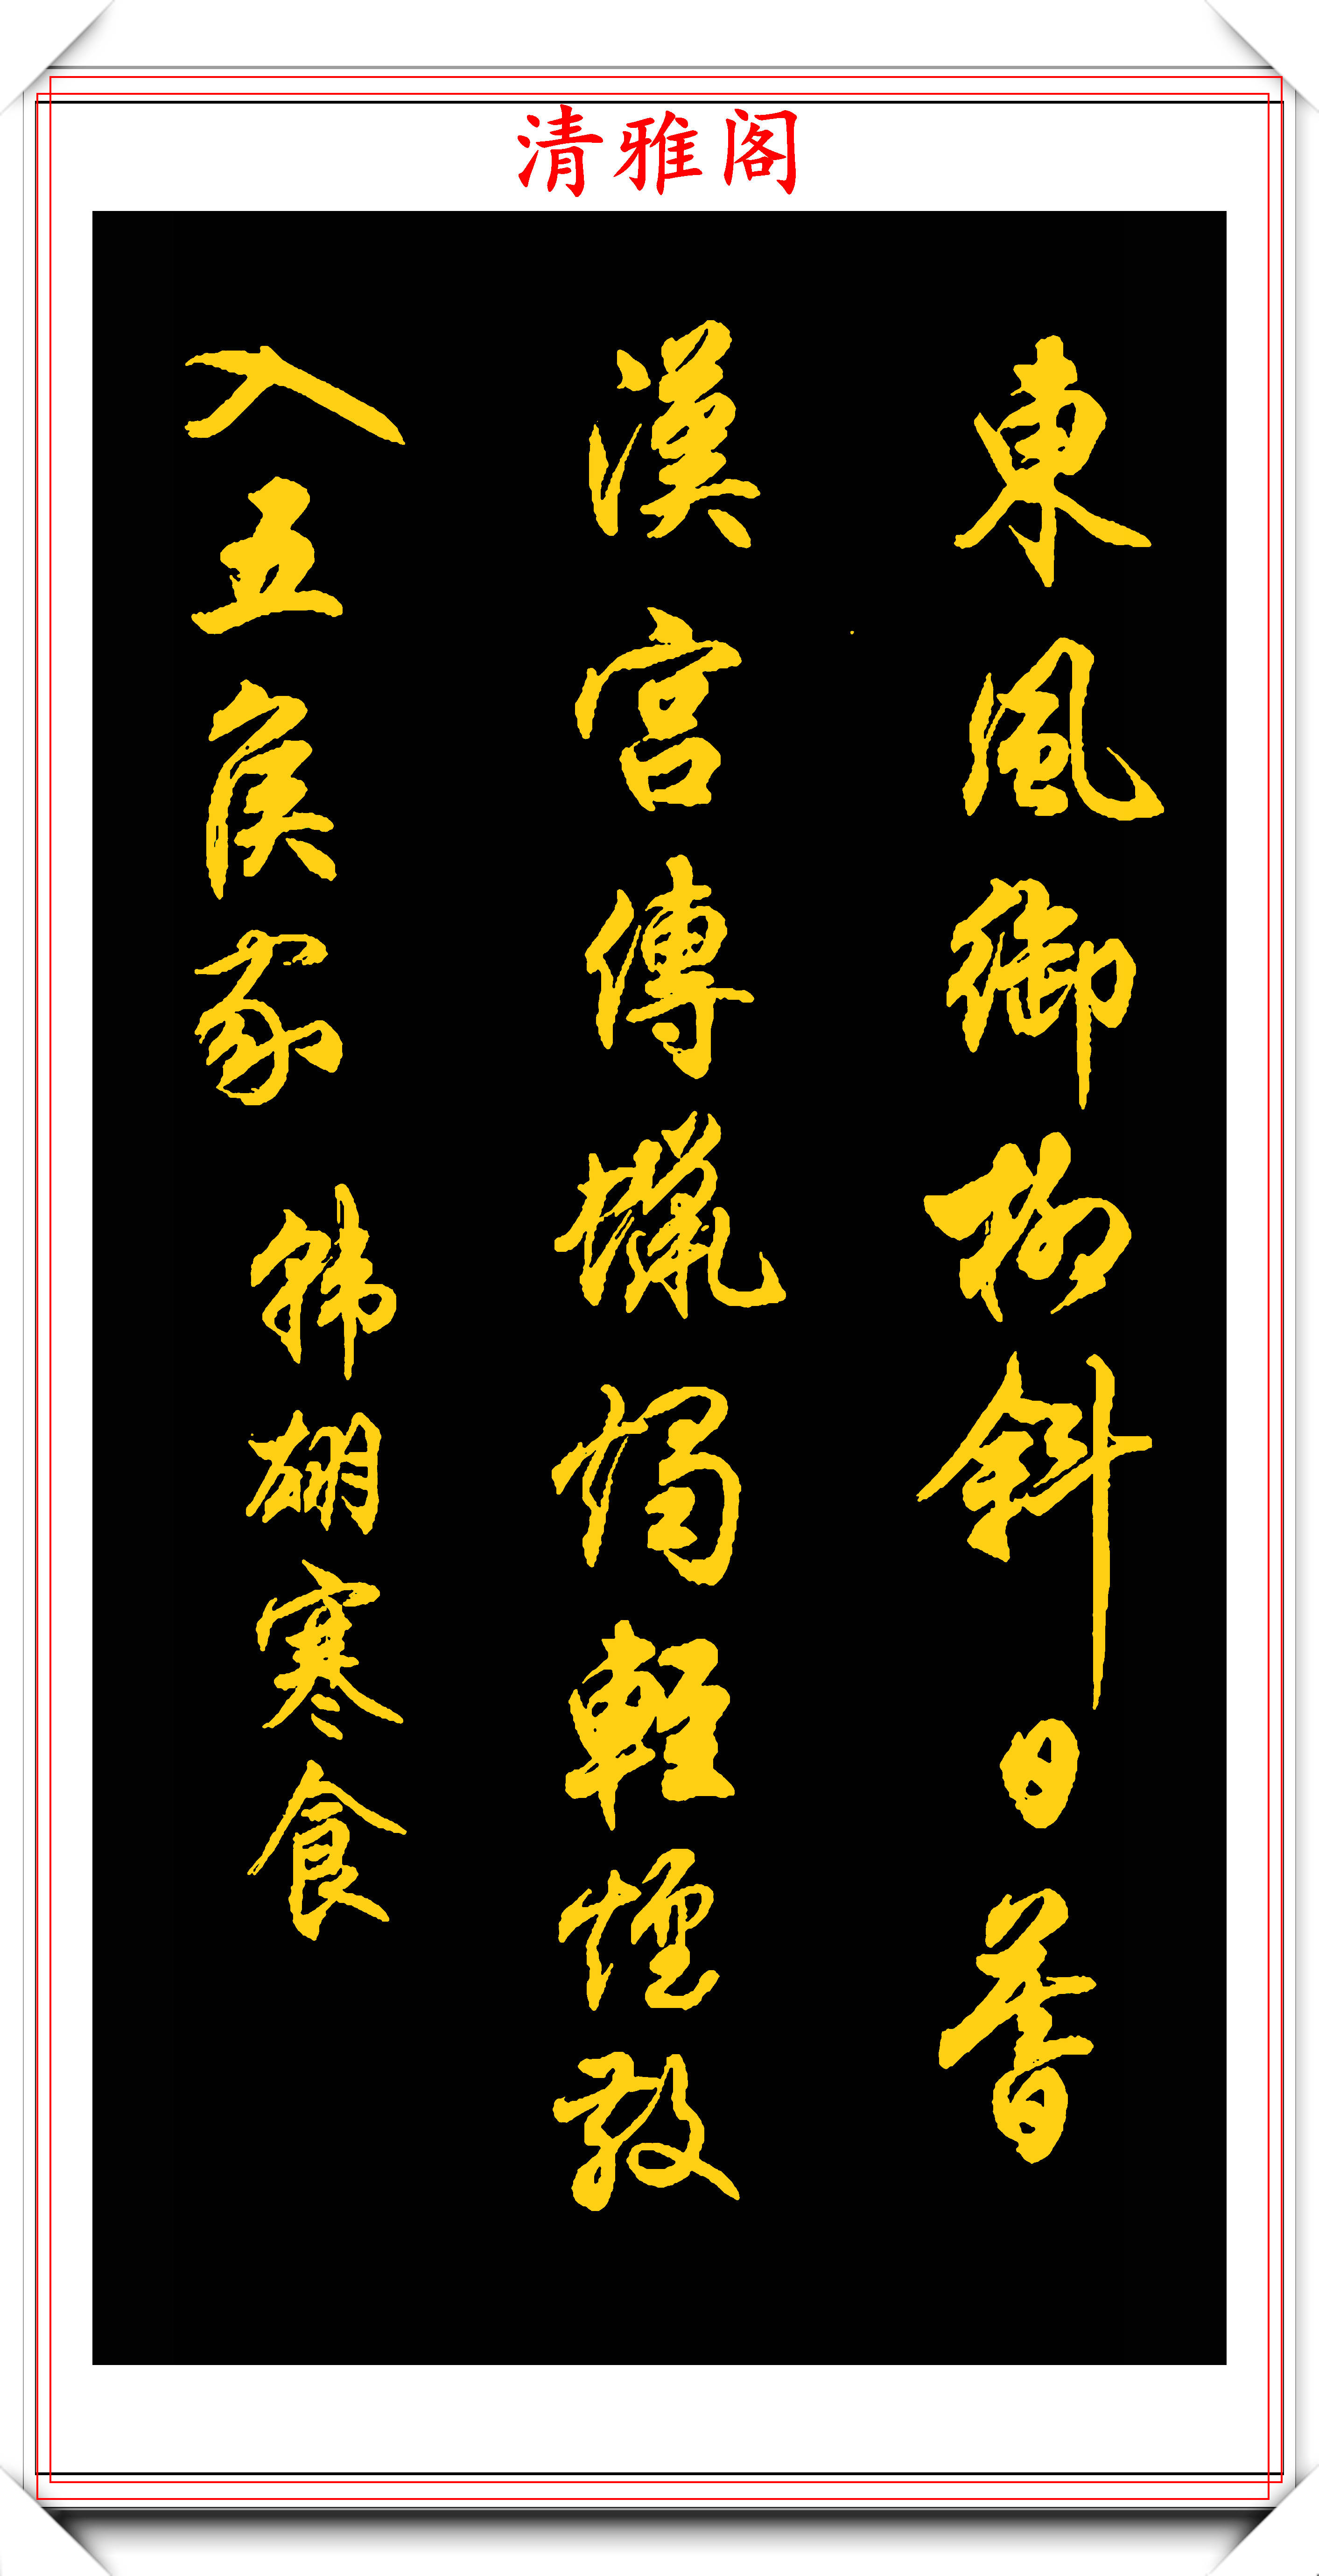 清雅阁
東風御柳斜日暮
漢宮傳蠟燭輕煙散
入五侯家 韩翃寒食